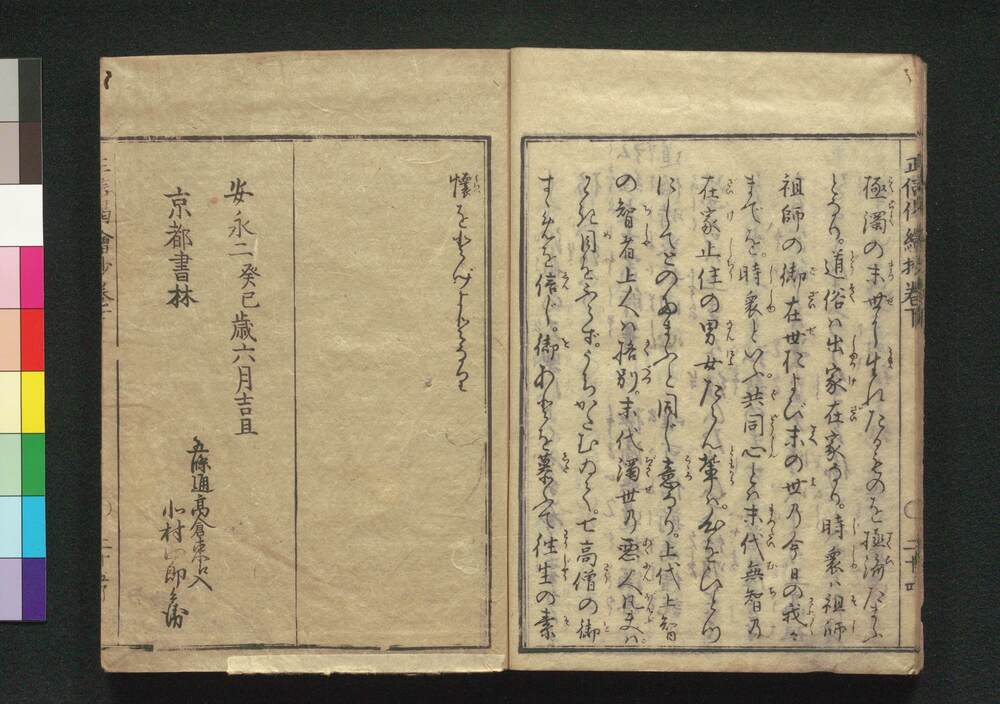 極濁の末世に生れたるものを極済たまふ
となり。道俗は出家在家なり。時衆は祖師
祖師の御在世 末の世乃今日の我々
までを。時衆といふ。共同心とは末代無智乃
在家止住の男女たらん輩は。心をひとつ
にしてとのたまふと同じ意なり。上代上智
の智者上人は格別。末代濁世乃悪人凡夫は。
わき目をふらず。 七高僧の御
すゝめを信じ。御あとを慕ふて往生の素
懐をとげよとなり
安永二癸巳歳六月吉旦
京都書林
五條通高倉東へ入
小村 郎兵衛
正信偈繪抄巻下
二十四